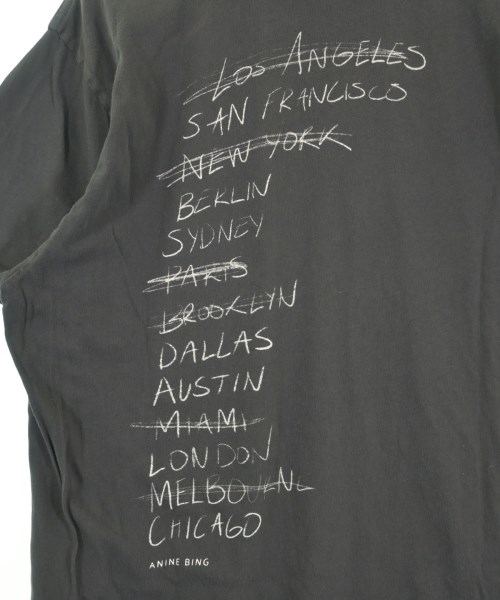 LOS ANGELES
SAN FRANCISCO
NEW YORK
BERLIN
SYDNEY
PARIS
BROOKLYN
DALLAS
AUSTIN
MIAMI
LONDON
MELBOURNE
CHICAGO
ANINE BING